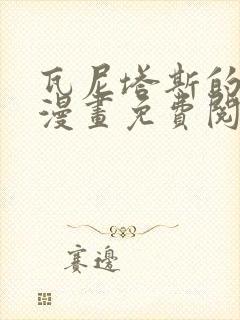 瓦尼塔斯的
漫畫免費閱
賽邊